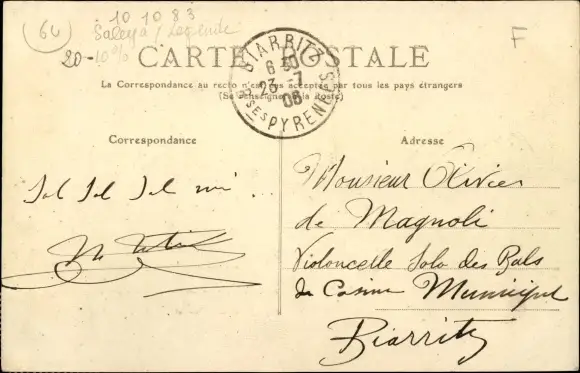 64
10 10 83
20-10%
F
CARTE POSTALE
La Correspondance au recto n'est pas acceptée par tous les pays étrangers
(Se renseigner à la Poste)
BIARRITZ
6 30
23 -7
06
BSES PYRENEES
Correspondance
Sol Sol Sol mi ...
Adresse
Monsieur Olivier
de Magnoli
Violoncelle Solo des Bals
du Casino Municipal
Biarritz